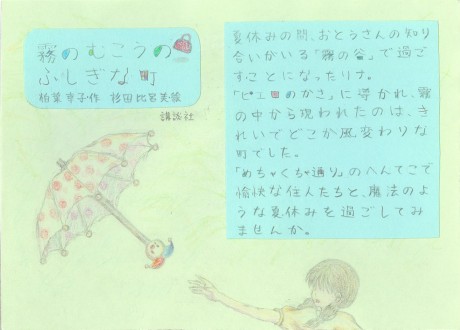 霧のむこうの
ふしぎな町
柏葉幸子作 杉田比呂美絵
講談社
夏休みの間、おとうさんの知り
合いがいる「霧の谷」で過ご
すことになったリナ。
「ピエロのかさ」に導かれ、霧
の中から現われたのは、き
れいでどこか風変わりな
町でした。
「めちゃくちゃ通り」のへんてこで
愉快な住人たちと、魔法のよ
うな夏休みを過ごしてみ
ませんか。